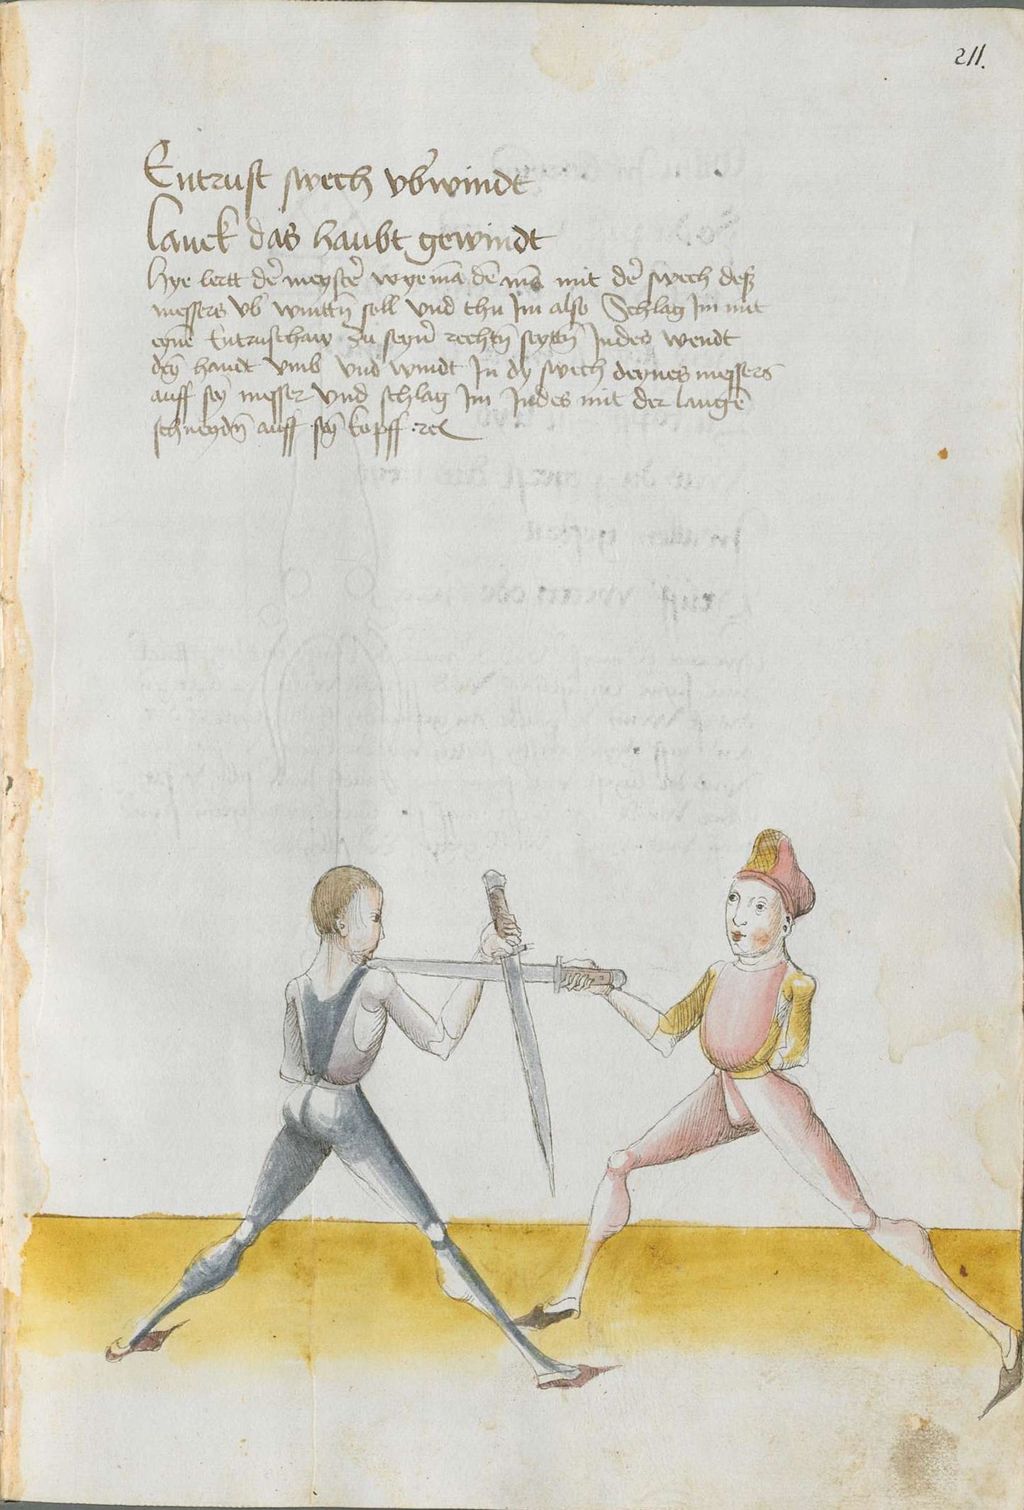 211.
Entrust swech vb̄windt
lauck das haubt gewindt
Hye lertt de᷑ meyste᷑ wye mā de᷑ mā mit de᷑ swech deß
messers vb winttn̄ soll vnd thu Jm also Schlag Jm mit
eyn̄e Entrusthaw zu seyn᷑ rechtn̄ seyttn̄ Jndes wendt
deȳ handt vmb vnd windt Jn dy swech deynes messers
auff seȳ messer vnd schlag Jm Jndes mit der langē
schneydn̄ auff seȳ kopff ·rc